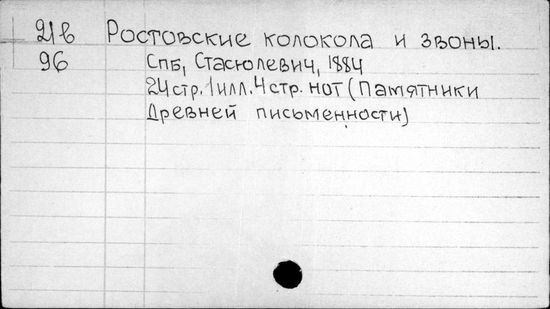 21в Ростовские колокола и звоны.
96 Спб, Стасюлевич, 1884
24стр. 1илл. 4стр. нот (Памятники
Древней письменности)